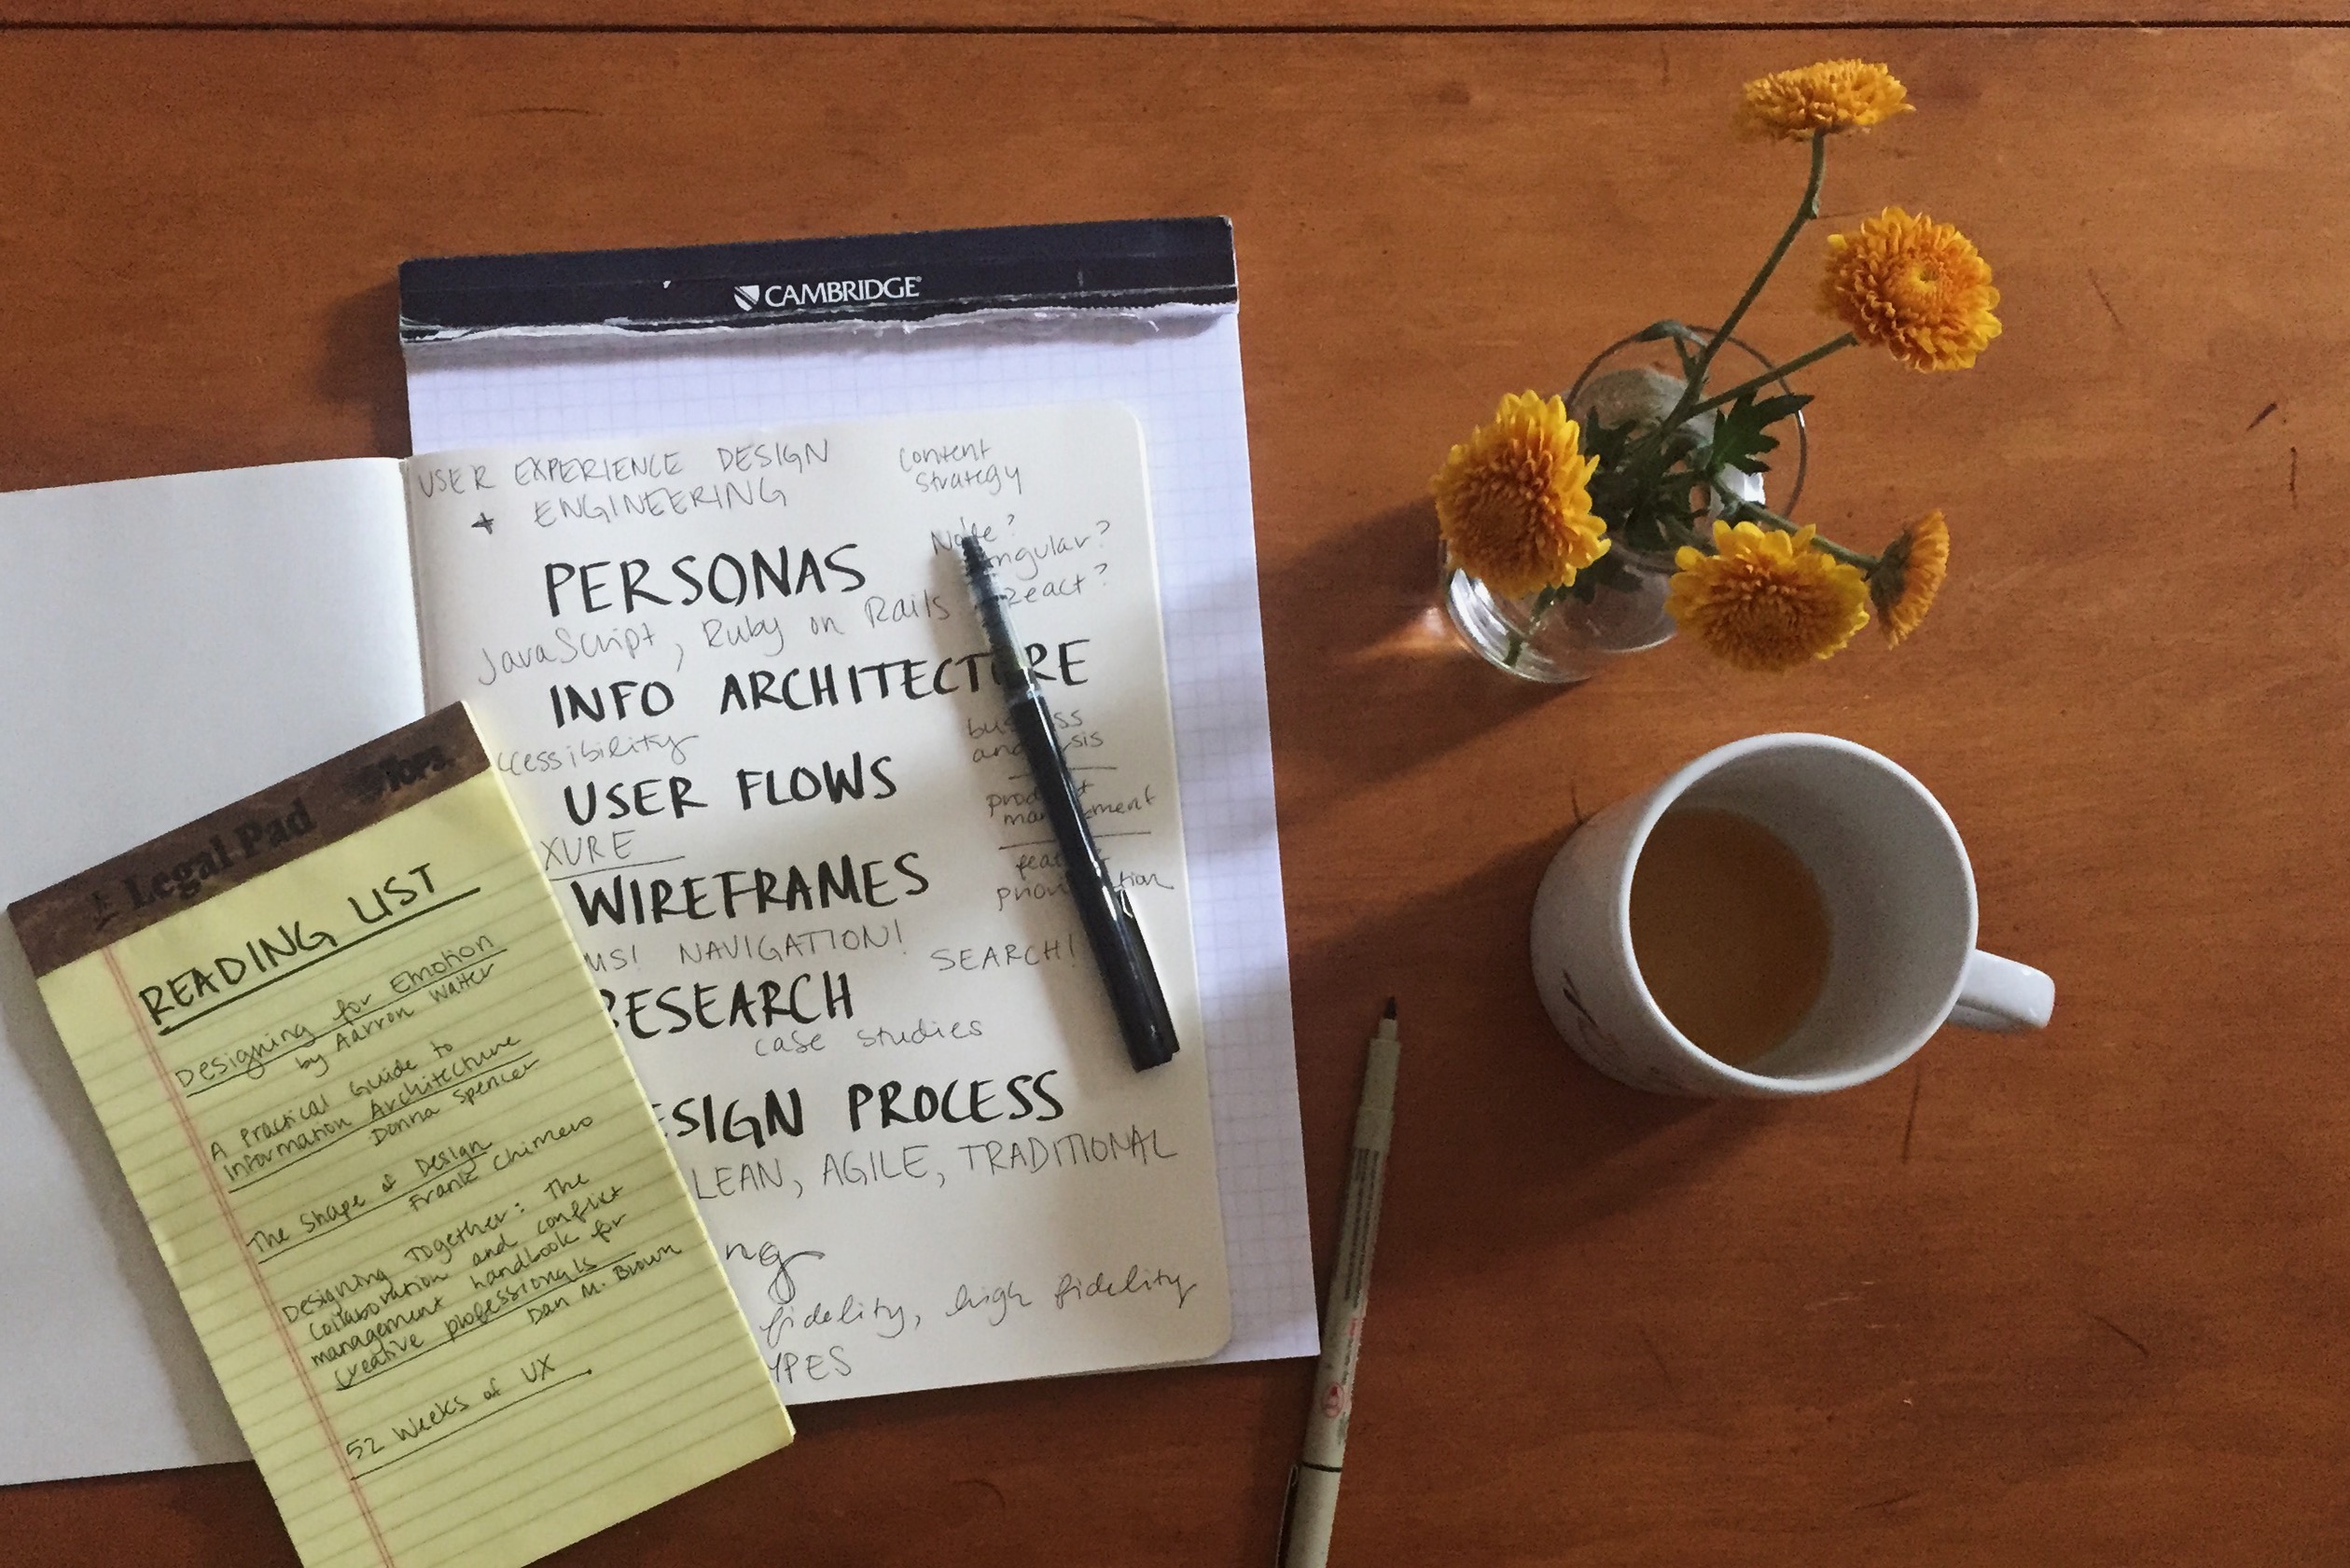 CAMBRIDGE
USER EXPERIENCE DESIGN
+ ENGINEERING
Content
Strategy
PERSONAS
Node?
Angular?
React?
JavaScript, Ruby on Rails
INFO ARCHITECTURE
business
analysis
ccessibility
USER FLOWS
product
management
XURE
feature
prioritization
WIREFRAMES
MS! NAVIGATION! SEARCH!
RESEARCH
case studies
ESIGN PROCESS
LEAN, AGILE, TRADITIONAL
ng
fidelity, high fidelity
YPES
Legal Pad
Tops
READING LIST
Designing for Emotion
by Aarron Walter
A Practical Guide to
Information Architecture
Donna Spencer
The Shape of Design
Frank Chimero
Designing Together: The
Collaboration and conflict
management handbook for
creative professionals
Dan M. Brown
52 Weeks of UX